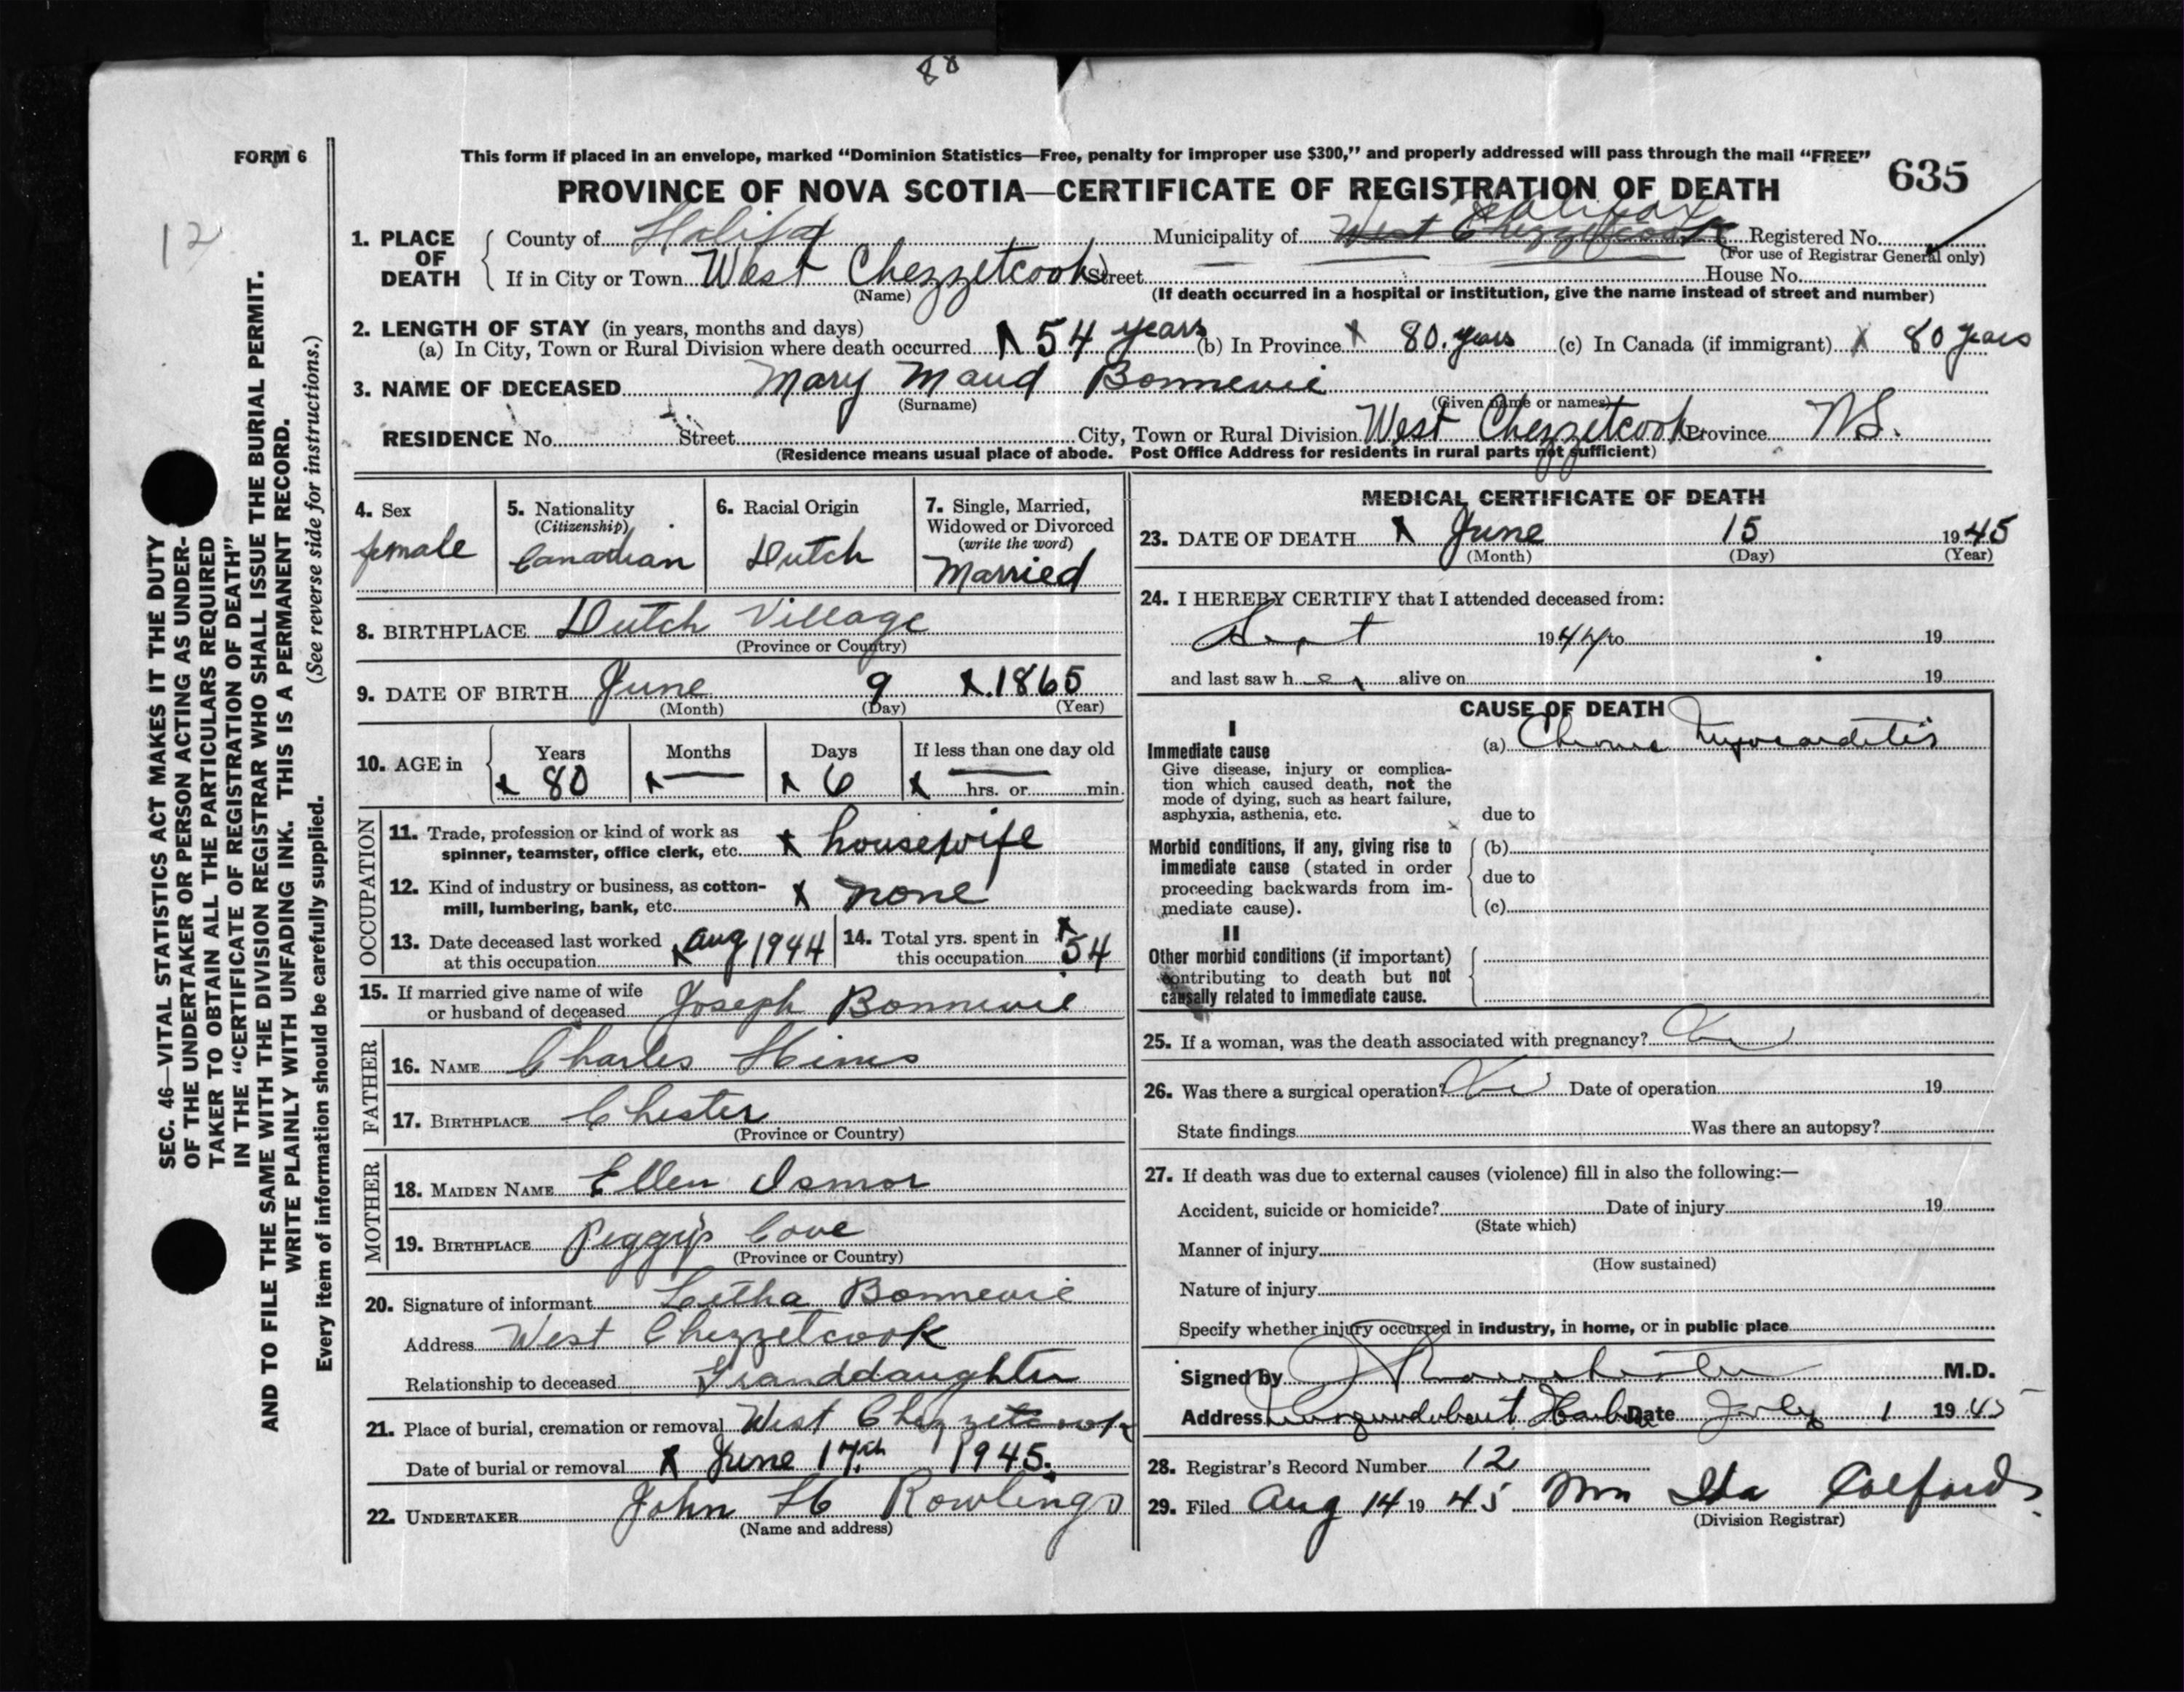 88
FORM 6
This form if placed in an envelope, marked “Dominion Statistics—Free, penalty for improper use $300,” and properly addressed will pass through the mail “FREE”
635
PROVINCE OF NOVA SCOTIA—CERTIFICATE OF REGISTRATION OF DEATH
12
SEC. 46—VITAL STATISTICS ACT MAKES IT THE DUTY
OF THE UNDERTAKER OR PERSON ACTING AS UNDER-
TAKER TO OBTAIN ALL THE PARTICULARS REQUIRED
IN THE “CERTIFICATE OF REGISTRATION OF DEATH”
AND TO FILE THE SAME WITH THE DIVISION REGISTRAR WHO SHALL ISSUE THE BURIAL PERMIT.
WRITE PLAINLY WITH UNFADING INK. THIS IS A PERMANENT RECORD.
Every item of information should be carefully supplied. (See reverse side for instructions.)
Halifax
1. PLACE OF DEATH County of Halifax Municipality of West Chezzetcook Registered No.
(For use of Registrar General only)
If in City or Town West Chezzetcook Street House No.
(Name) (If death occurred in a hospital or institution, give the name instead of street and number)
2. LENGTH OF STAY (in years, months and days)
(a) In City, Town or Rural Division where death occurred X 54 years (b) In Province X 80. years (c) In Canada (if immigrant) X 80 years
3. NAME OF DECEASED Mary Maud Bonnevie
(Surname) (Given name or names)
RESIDENCE No. Street City, Town or Rural Division West Chezzetcook Province N.S.
(Residence means usual place of abode. Post Office Address for residents in rural parts not sufficient)
4. Sex
female
5. Nationality
(Citizenship)
Canadian
6. Racial Origin
Dutch
7. Single, Married,
Widowed or Divorced
(write the word)
Married
8. BIRTHPLACE Dutch Village
(Province or Country)
9. DATE OF BIRTH June 9 X 1865
(Month) (Day) (Year)
10. AGE in Years Months Days If less than one day old
X 80 X — X 6 X — hrs. or min.
OCCUPATION
11. Trade, profession or kind of work as
spinner, teamster, office clerk, etc. X housewife
12. Kind of industry or business, as cotton-
mill, lumbering, bank, etc. X none
13. Date deceased last worked
at this occupation X Aug 1944
14. Total yrs. spent in
this occupation X 54
15. If married give name of wife
or husband of deceased Joseph Bonnevie
FATHER
16. NAME Charles Hims
17. BIRTHPLACE Chester
(Province or Country)
MOTHER
18. MAIDEN NAME Ellen Ismor
19. BIRTHPLACE Peggy's Cove
(Province or Country)
20. Signature of informant Letha Bonnevie
Address West Chezzetcook
Relationship to deceased Granddaughter
21. Place of burial, cremation or removal West Chezzetcook
Date of burial or removal X June 17th 1945.
22. UNDERTAKER John H Rowlings
(Name and address)
MEDICAL CERTIFICATE OF DEATH
23. DATE OF DEATH X June 15 1945
(Month) (Day) (Year)
24. I HEREBY CERTIFY that I attended deceased from:
Sept 1944 to 19
and last saw h er alive on 19
CAUSE OF DEATH
I
Immediate cause
Give disease, injury or complica-
tion which caused death, not the
mode of dying, such as heart failure,
asphyxia, asthenia, etc.
(a) Chronic Myocarditis
due to
Morbid conditions, if any, giving rise to
immediate cause (stated in order
proceeding backwards from im-
mediate cause).
(b)
due to
(c)
II
Other morbid conditions (if important)
contributing to death but not
causally related to immediate cause.
25. If a woman, was the death associated with pregnancy? No
26. Was there a surgical operation? No Date of operation 19
State findings Was there an autopsy?
27. If death was due to external causes (violence) fill in also the following:—
Accident, suicide or homicide? Date of injury 19
(State which)
Manner of injury
(How sustained)
Nature of injury
Specify whether injury occurred in industry, in home, or in public place
Signed by M.D.
Address Harbour Date July 1 1945
28. Registrar's Record Number 12
29. Filed Aug 14 1945 Mrs Ida Colford
(Division Registrar)